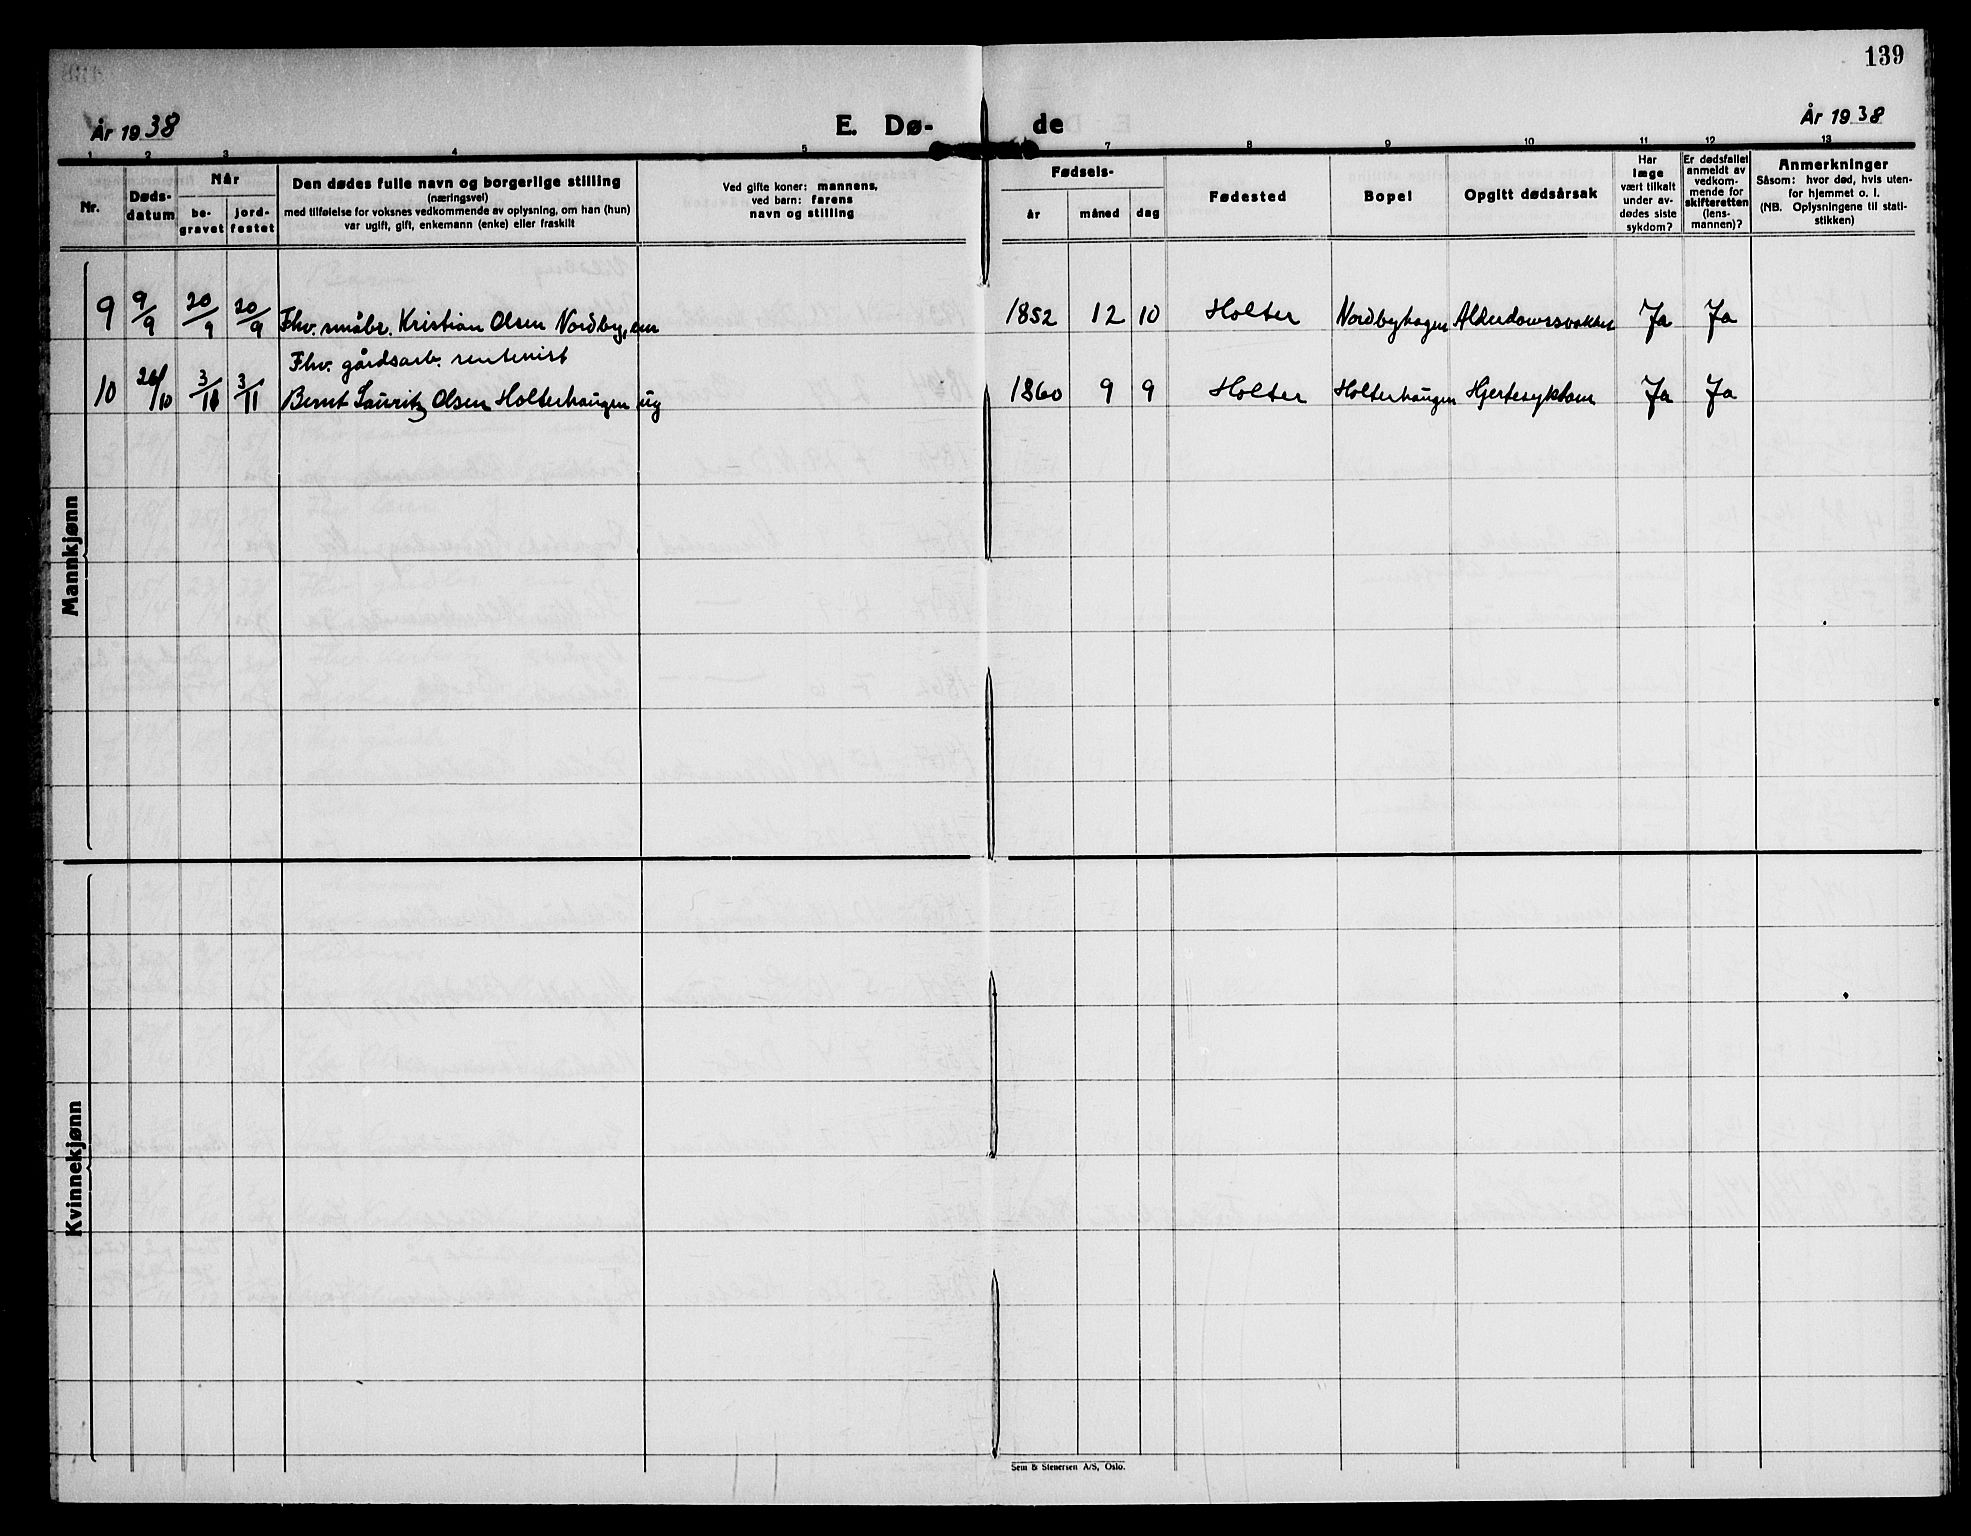 139
År 1938
E. Dø-
de
År 1938
1 2 3 4 5 7 8 9 10 11 12 13
Nr.
Døds-
datum
Når
be-
gravet
jord-
festet
Den dødes fulle navn og borgerlige stilling
(næringsvei)
med tilføielse for voksnes vedkommende av oplysning, om han (hun)
var ugift, gift, enkemann (enke) eller fraskilt
Ved gifte koner: mannens,
ved barn: farens
navn og stilling
Fødsels-
år
måned
dag
Fødested
Bopel
Opgitt dødsårsak
Har
læge
vært tilkalt
under av-
dødes siste
sykdom?
Er dødsfallet
anmeldt av
vedkom-
mende for
skifteretten
(lens-
mannen)?
Anmerkninger
Såsom: hvor død, hvis uten-
for hjemmet o. l.
(NB. Oplysningene til stati-
stikken)
Mannkjønn
9 9/9 20/9 20/9 Fhv. småbr. Kristian Olsen Nordby, em 1852 12 10 Holter Nordbyhagen Alderdomssvakhet Ja Ja
Fhv. gårdsarb. rentenist
10 26/10 3/11 3/11 Bernt Lauritz Olsen Holterhaugen ug 1860 9 9 Holter Holterhaugen Hjertesykdom Ja Ja
Kvinnekjønn
Sem & Stenersen A/S, Oslo.